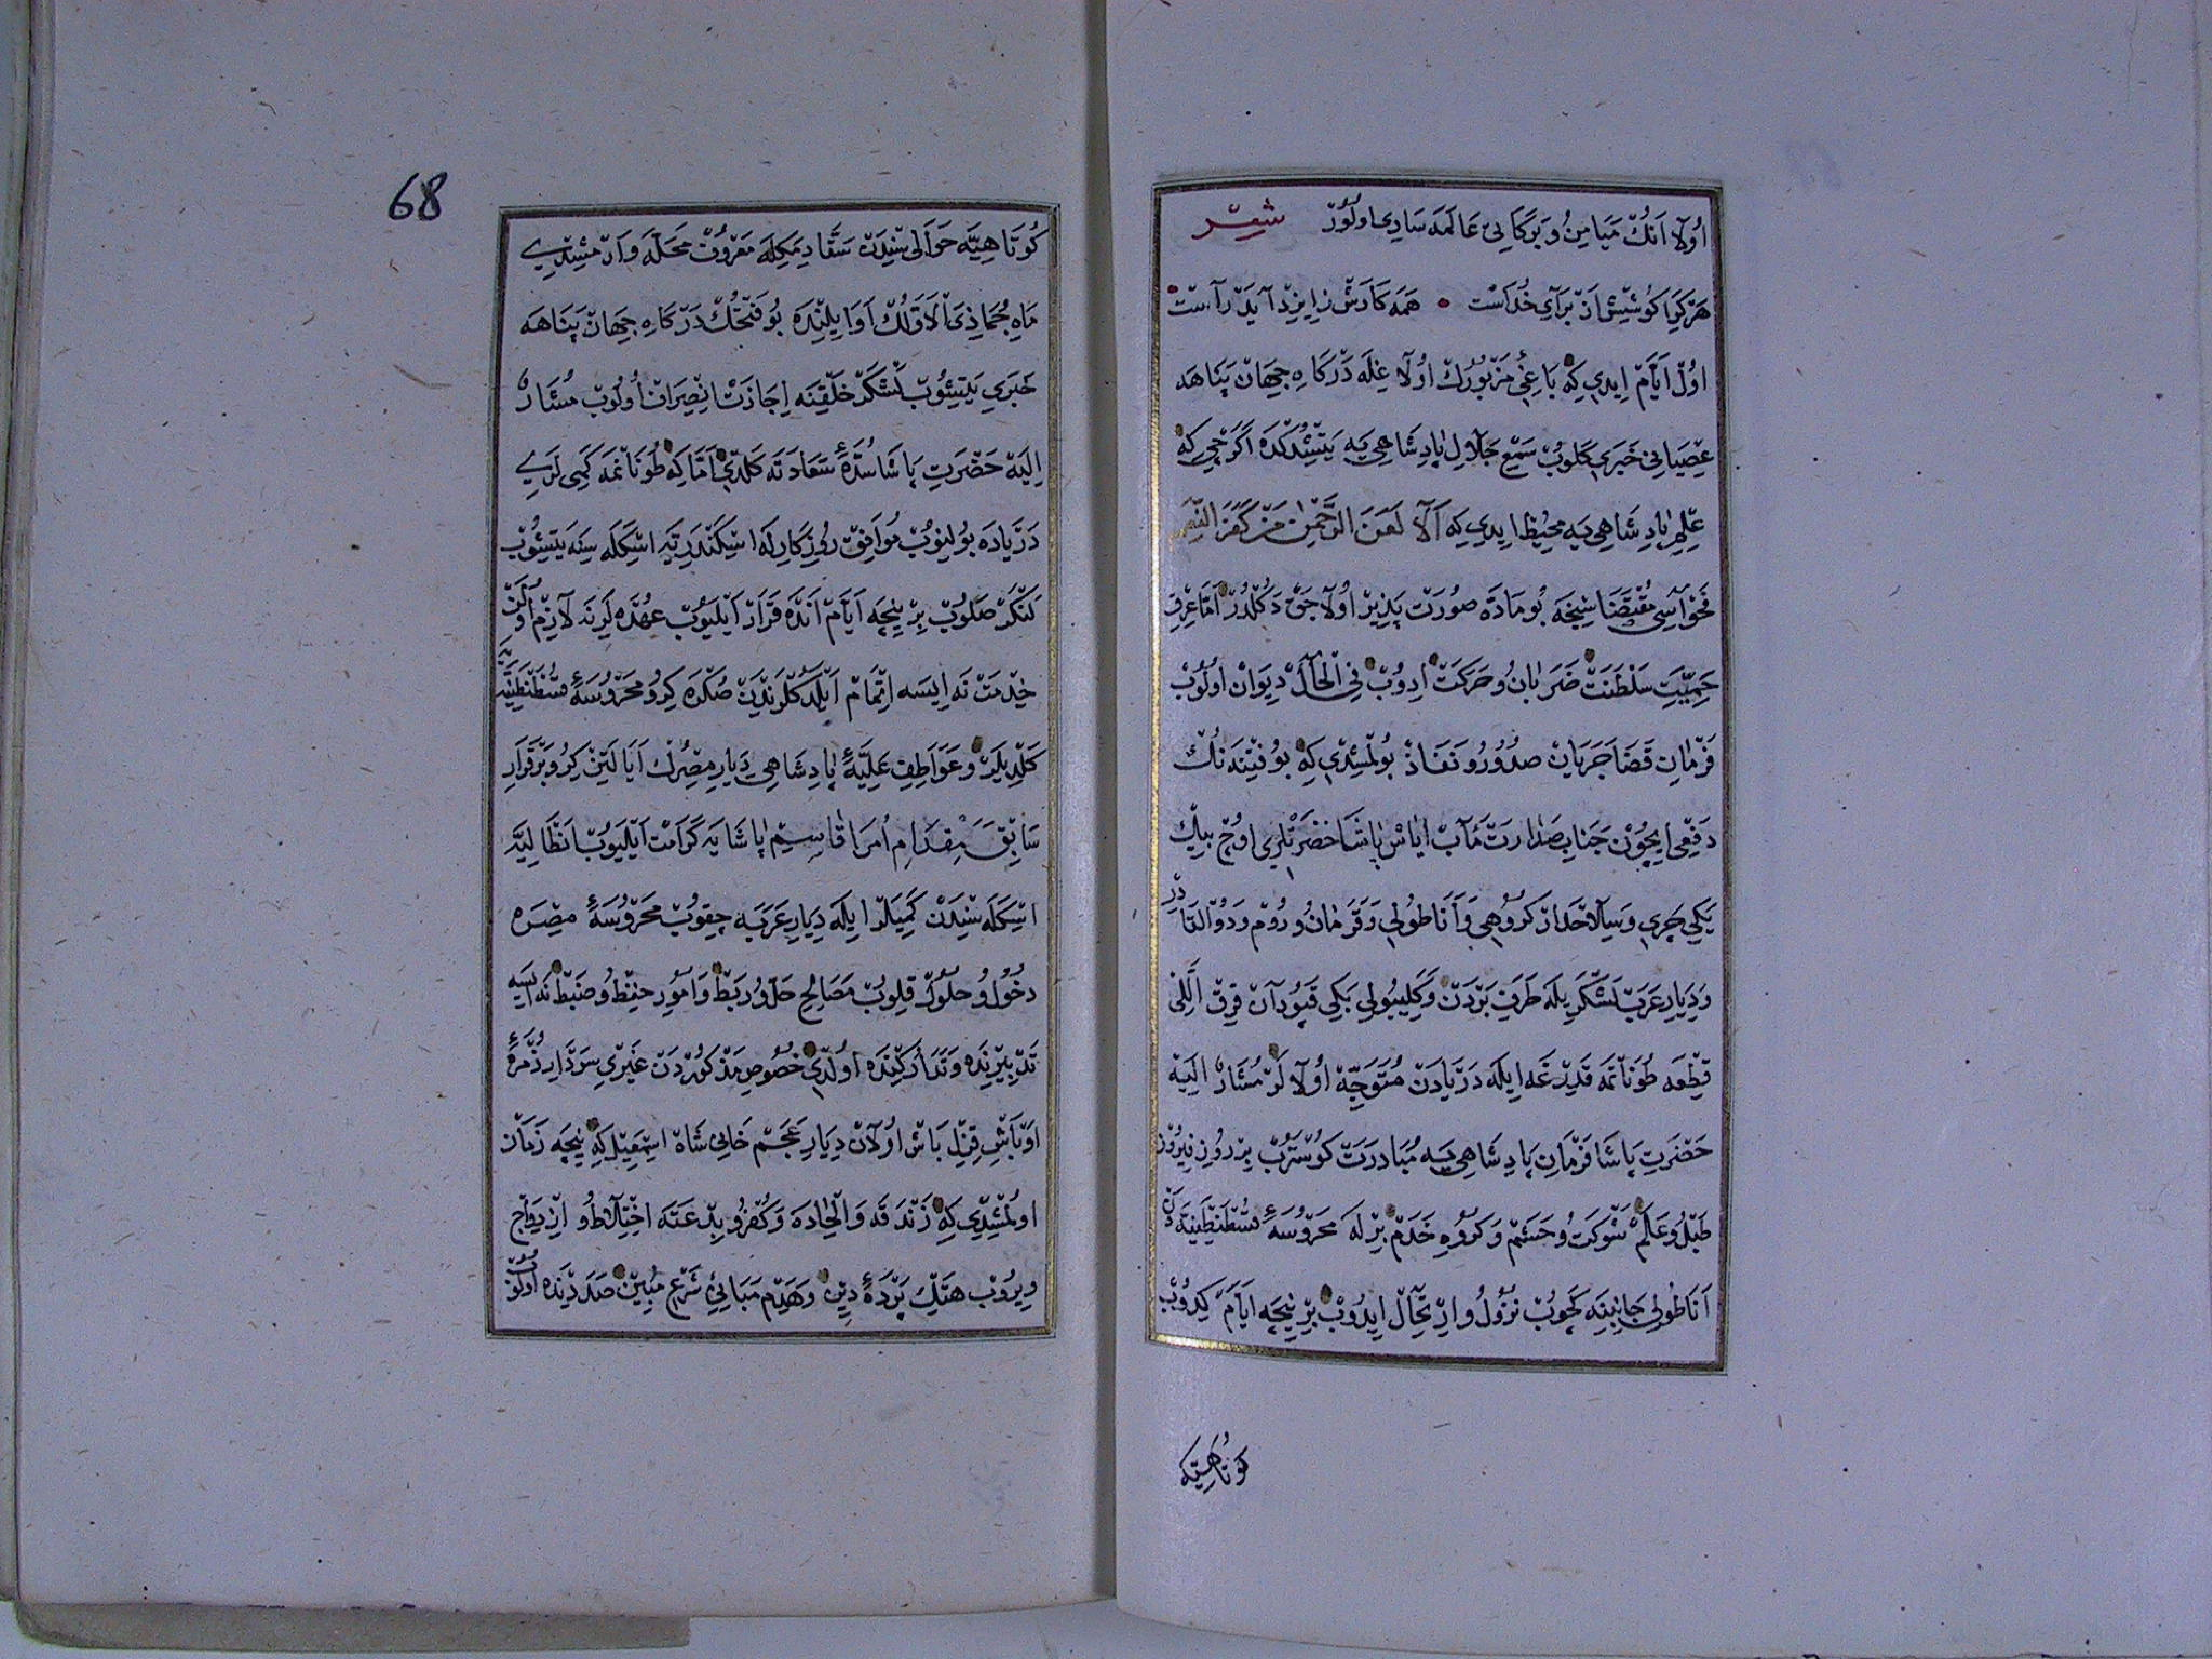 اولا انك ميامن و بركاتى عالمه سارى اولور شعر
هركرا كوشش از براى خداست همه كارش ز ايزد آيد راست
اول ايام ايدى كه باغئ مزبورك اولاغيله دركاه جهان پناهه
عصيانى خبرى كلوب سمع جلال پادشاهى يه يتشدكده اكرچى كه
علم پادشاهى يه محيط ايدى كه الا لعن الرحمن من كفر النعم
فحواسى مقتضاسنجه بو ماده صورت پذير اولاجق دكلدر اما عرق
حميت سلطنت ضربان و حركت ادوب فى الحال ديوان اولوب
فرمان قضا جريان صدور و نفاذ بولمشدى كه بو فتنه نك
دفعى ايچون جناب صدارت مآب اياس پاشا حضرتلرى اوچ بيك
يكى چرى و سلاحدار كروهى و اناطولى و قرمان و روم و ذو القادر
و ديار عرب لشكريله طرف بردن و كليبولى بكى قپودان قرق اللى
قطعه طوناتمه قدرغه ايله دريادن متوجه اولالر مشار اليه
حضرت پاشا فرمان پادشاهى يه مبادرت كوسترب بر روز فيروز
طبل و علم شوكت و حشم و كروه خدم برله محروسۀ قسطنطينيه دن
اناطولى جانبنه كچوب نزول و ارتحال ايدوب بر نيجه ايام كيدوب
كوتاهيه
68
كوتاهيه حواليسندن سقاديمكله معروف محله وارمشيدى
ماه جمادى الاولك اوايلنده بو فتحك دركاه جهان پناهه
خبرى يتيشوب لشكر خلقنه اجازت انصراف اولوب مشار
اليه حضرت پاشا سدۀ سعادته كلدى اما كه طوناتمه كمى لرى
درياده بولنوب موافق روزكارله اسكندريه اسكله سنه يتيشوب
لنكر صلوب بر نيجه ايام انده قرار ايليوب عهده لرنه لازم اولن
خدمت نه ايسه اتمام ايلدكلرندن صكره كرو محروسۀ قسطنطينيه يه
كلديلر و عواطف عليۀ پادشاهى ديار مصرك ايالتين كرو برقرار
سابق مقدام امرا قاسم پاشايه كرامت ايليوب انطاليه
اسكله سندن كميلر ايله ديار عربه چقوب محروسۀ مصره
دخول و حلول قلوب مصالح حل و ربط و امور حفظ و ضبط نه ايسه
تدبيرنده و تداركنده اولدى خصوص مذكوردن غيرى سردار زمرۀ
اوباش قزل باش اولان ديار عجم خانى شاه اسمعيل كه نيجه زمان
اولمشيدى كه زندقه و الحاده و كفر و بدعته اختلاط و ازدواج
ويروب هتك پردۀ دين و هدم مبانئ شرع مبين صددنده اولوب